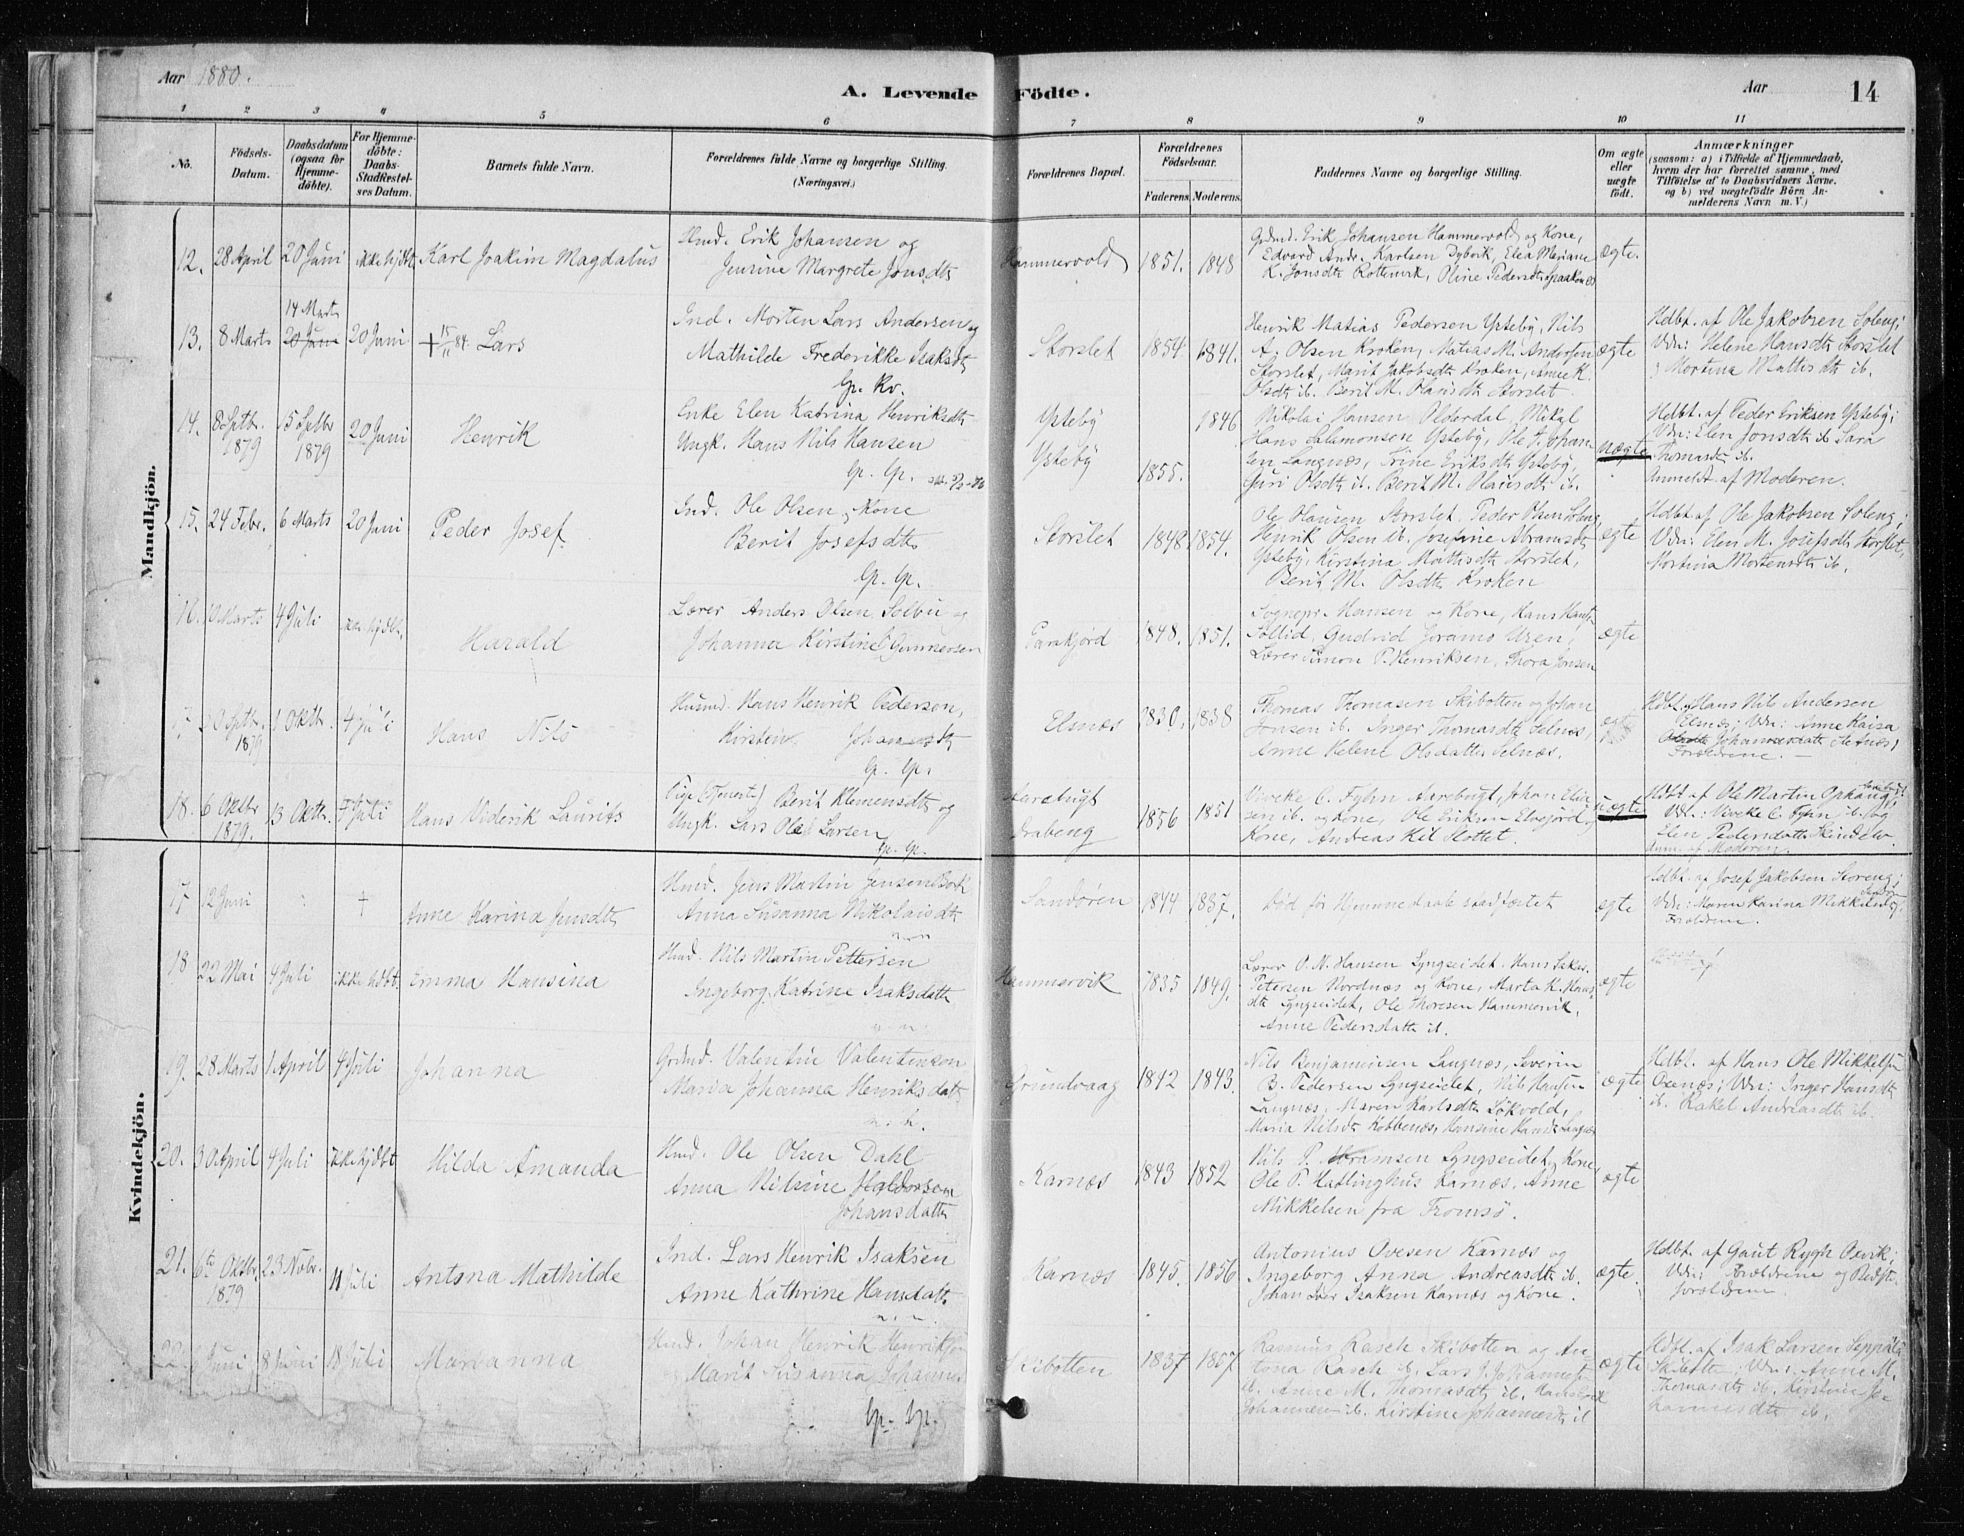 Aar 1880.
A. Levende Födte.
Aar
14
1 2 3 4 5 6 7 8 9 10 11
No.
Födsels-Datum.
Daabsdatum (ogsaa for Hjemmedöbte).
For Hjemmedöbte: Daabs-Stadfæstelses Datum.
Barnets fulde Navn.
Forældrenes fulde Navne og borgerlige Stilling. (Næringsvei.)
Forældrenes Bopæl.
Forældrenes Födselsaar.
Faderens. Moderens.
Faddernes Navne og borgerlige Stilling.
Om ægte eller uægte födt.
Anmærkninger
(saasom: a) i Tilfælde af Hjemmedaab, hvem der har forrettet samme, med Tilföielse af to Daabsvidners Navne, og b) ved uægtefödte Börn Anmelderens Navn m. V.)
Mandkjön.
12. 28 April 20 Juni ikke hjdbt Karl Joakim Magdalus
Hmd. Erik Johansen og
Jensine Margrete Jonsdtr
Hammervold 1851. 1848
Grdmd. Erik Johansen Hammervold og Kone,
Edvard Andr. Karlsen Dybvik, Elea Meriane
K. Jonsdtr Rottenvik, Oline Pedersdtr
ægte.
13. 8 Marts 14 Marts 20 Juni 20 Juni + 15/11 84 Lars
Ind. Morten Lars Andersen og
Mathilde Frederikke Isaksdtr
Gp. Kv.
Storslet 1854 1841.
Henrik Matias Pedersen Ysteby, Nils
A. Olsen Kroken, Matias M. Andersen
Storslet, Marit Jakobsdtr Kroken, Anne K.
Olsdtr ib. Berit M. Olausdtr Storslet
ægte
Hdbt. af Ole Jakobsen Soleng;
Vdn: Helene Hansdtr Storslet
Mortina Mattisdtr ib.
14. 8 Septbr. 1879 15 Septbr 1879 20 Juni Henrik
Enke Elen Katrina Henriksdtr
Ungk. Hans Nils Hansen
Gp. Gp.
Ysteby 1846
Ysteby 1855.
Nikolai Hansen Olderdal, Mikal
Hans Salamonsen Ysteby, Ole A. Johansen
Langnæs, Trine Eriksdtr Ysteby,
Guri Olsdtr ib. Berit M. Olausdtr ib.
uægte
Hdbt. af Peder Eriksen Ysteby;
Vdn: Elen Jonsdtr ib Sara
Thomasdtr ib.
Anmeldt af Moderen.
15. 24 Febr. 6 Marts 20 Juni Peder Josef
Ind. Ole Olsen, Kone
Berit Josefsdtr
Gp. Gp.
Storslet 1848 1854.
Ole Olausen Storslet, Peder Olsen Soleng,
Henrik Olsen ib. Josefine Abramsdtr
Ysteby, Kirstina Mathisdtr Storslet,
Berit M. Olsdtr Kroken
ægte
Hdbt. af Ole Jakobsen Soleng;
Vdn: Elen M. Josefsdtr Storslet,
Mortina Mortensdtr ib.
16. 10 Marts 4 Juli ikke hjdbt. Harald
Lærer Anders Olsen Solbu og
Johanna Kirstine Gunnersen
Parakjord 1848. 1851.
Sognepr. Hansen og Kone, Hans Hans
Sollid, Gudrid Joramo Uren,
Lærer Simon P. Henriksen, Thora Jensen
ægte
17 20 Septbr. 1879 1 Oktbr. 4 Juli Hans Nils
Husmd. Hans Henrik Pedersen,
Kirsten Johansdtr
Gp. Gp.
Elsnæs 1830. 1838
Thomas Thomasen Skibotten og Johan
Jensen ib. Inger Thomasdtr Selnæs,
Anne Helene Olsdatter Selnæs.
Hdbt. Hans Nils Andersen
Elsnæs; Vdn: Anne Kaisa
Johannesdatter
Forældrene.
18. 6 Oktbr 1879. 13 Oktbr. 4 Juli Hans Viderik Laurits
Pige (Tjeneste) Berit Klemensdtr og
Ungk. Lars Olai Larsen
Gp. Gp.
Aarebugt
Drabeng 1856 1851
Viveke C. Fyhn Aarebugt, Johan Elia-
sen ib. og Kone, Ole Eriksen Elvejord og
Kone, Andreas Kil Slottet.
uægte
Hdbt. af Ole Martin Ophaug,
Vdn.: Viveke C. Fyhn ib. og
Elen Pedersdatter Skindelv.
Anm. af Moderen.
Kvindekjön.
17 12 Juni + Anne Karina Jensdtr
Hmd. Jens Martin Jensen Bork
Anna Susanna Nikolaisdtr
Sandören 1844 1837.
Död för Hjemmedaab stadfæstet
ægte
Hdbt. af Josef Jakobsen Storeng;
Vdn: Maren Karina Mikkelsdtr,
Forældrene.
18 22 Mai 4 Juli ikke hdbt. Emma Hansina
Hmd. Nils Martin Pettersen
Ingeborg Katrine Isaksdatter
Hammervik 1835 1849.
Lærer O. N. Hansen Lyngseidet. Hans Isak
Petersen Nordnæs og Kone, Marta K. Hans-
dtr Lyngseidet, Ole Thoresen Hammervik,
Anne Pedersdatter ib.
ægte
19. 28 Marts 1 April 4 Juli Johanna
Grdmd. Valentin Valentinsen
Maria Johanna Henriksdatter
Grundvaag 1842 1843.
Nils Benjaminsen Langnæs, Severin
B. Pedersen Lyngseidet, Nils Hansen
Langnæs, Maren Karlsdtr Lökvold,
Maria Nilsdtr Kobbenæs, Hansine Hansdtr Langnæs
ægte
Hdbt. af Hans Ole Mikkelsen
Oxenæs; Vdn: Inger Hansdtr
ib. Rakel Andreasdtr ib.
20. 30 April 4 Juli ikke hjdbt Hilda Amanda
Hmd. Ole Olsen Dahl
Anna Nilsine Haldorsen
Johansdatter
Karnæs 1843 1852
Nils P. Abramsen Lyngseidet og Kone,
Ole P. Hatlinghus Karnæs. Anne
Mikkelsen fra Tromsö.
ægte
21. 6te Oktbr 1879 23 Nobr. 11 Juli Antona Mathilde
Ind. Lars Henrik Isaksen
Anne Kathrine Hansdatter
Karnæs 1845. 1856
Antonius Ovesen Karnæs og
Ingeborg Anna Andreasdtr ib.
Johan Isaksen Karnæs og Kone.
ægte.
Hdbt. af Gaut Rygh Oxvik;
Vdn: Forældrene og Bedste-
forældrene.
22. Juni 8 Juni 18 Juli Marianna
Hmd. Johan Henrik Henriksen
Marit Susanna Johannes
Gp. Gp.
Skibotten 1837 1857.
Rasmus Rasch Skibotten og An-
tona Rasch ib. Lars J. Johannes
ib. Anne M. Thomasdtr ib.
Johannesen ib. Kirstine Johannesdtr ib
ægte
Hdbt. af Isak Larsen Seppälä
Skibotten; Vdn: Anne M.
Thomasdtr ib. Kirstine Jo-
hannesdtr ib.